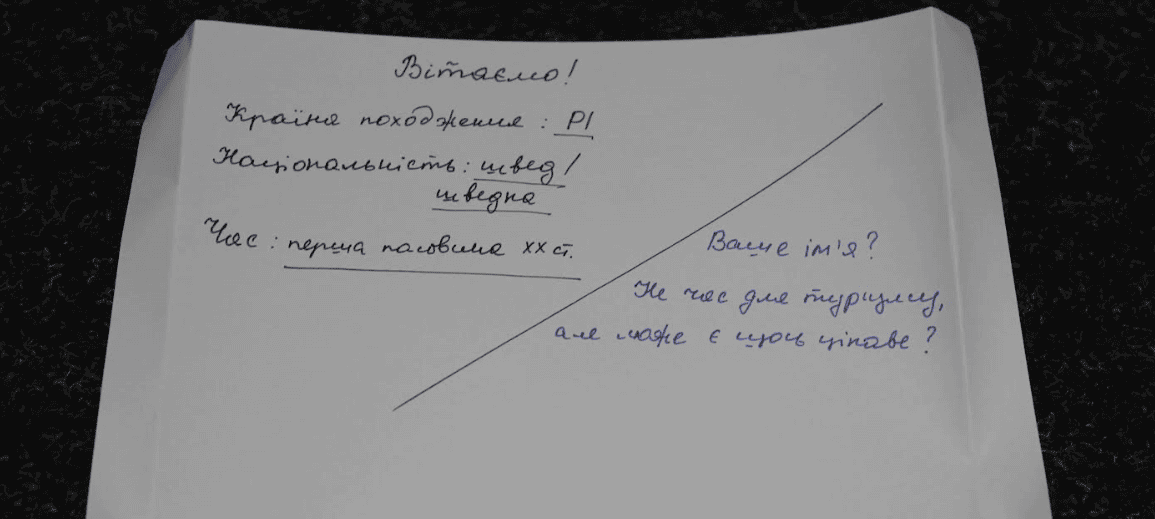 Вітаємо!
Країна походження: РІ
Національність: швед/
шведка
Час: перша половина ХХ ст.
Ваше ім'я?
Не час для туризму,
але може є щось цікаве?